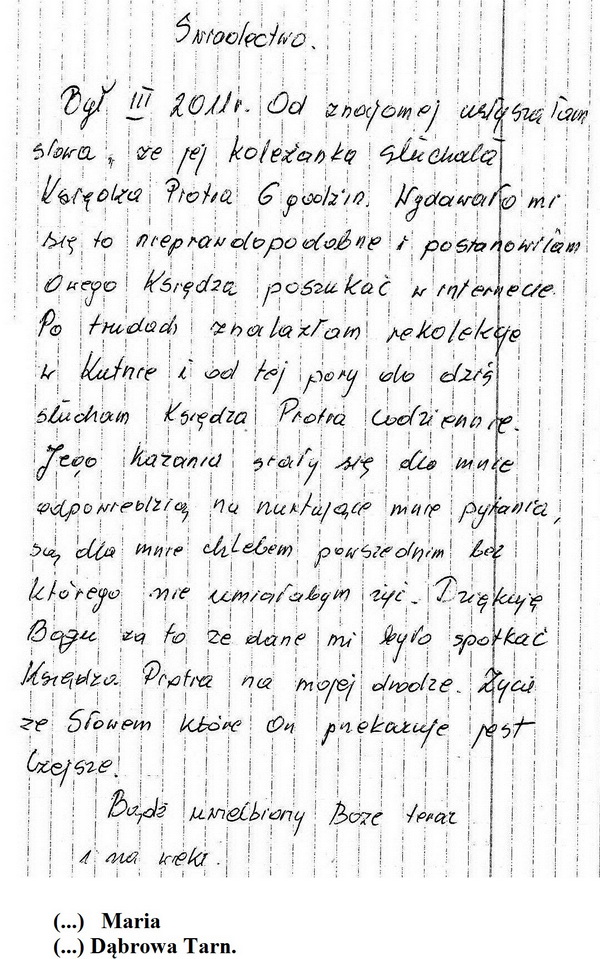 Świadectwo.
Był III 2011r. Od znajomej usłyszałam
słowa, że jej koleżanka słuchała
Księdza Piotra 6 godzin. Wydawało mi
się to nieprawdopodobne i postanowiłam
Owego Księdza poszukać w internecie.
Po trudach znalazłam rekolekcje
w Kutnie i od tej pory do dziś
słucham Księdza Piotra codziennie.
Jego kazania stały się dla mnie
odpowiedzią na nurtujące mnie pytania,
są dla mnie chlebem powszednim bez
którego nie umiałabym żyć. Dziękuję
Bogu za to że dane mi było spotkać
Księdza Piotra na mojej drodze. Życie
ze Słowem które On przekazuje jest
lżejsze.
Bądź uwielbiony Boże teraz
i na wieki.
(...) Maria
(...) Dąbrowa Tarn.